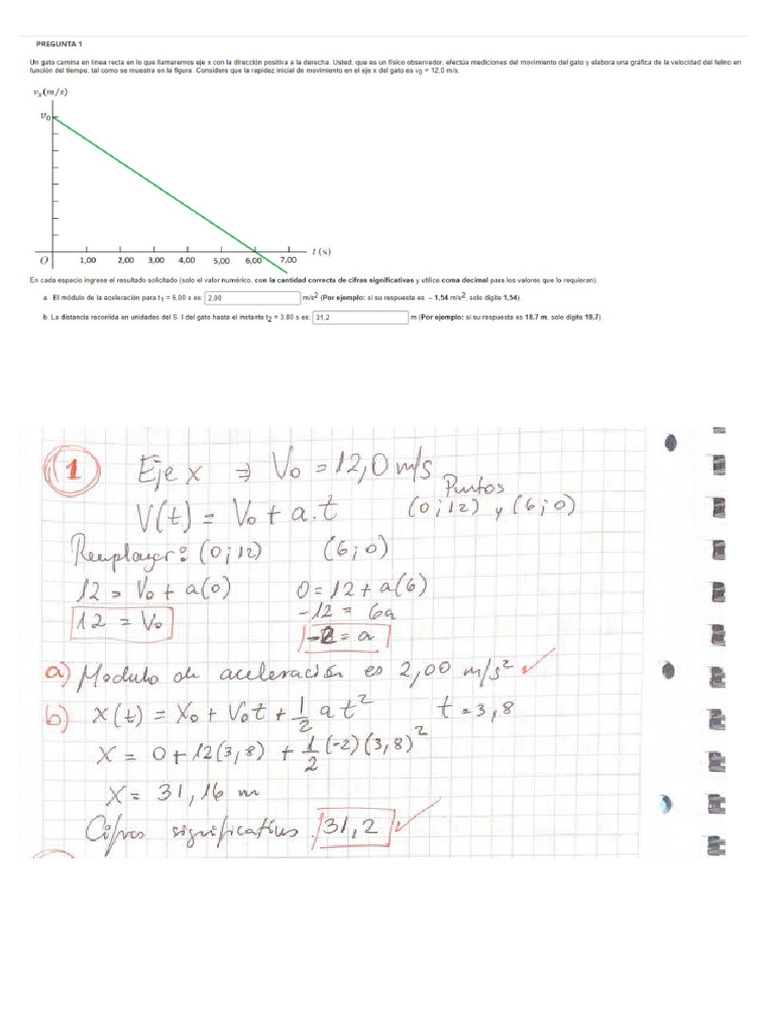 PREGUNTA 1
Un gato camina en línea recta en lo que llamaremos eje x con la dirección positiva a la derecha. Usted, que es un físico observador, efectúa mediciones del movimiento del gato y elabora una gráfica de la velocidad del felino en
función del tiempo, tal como se muestra en la figura. Considere que la rapidez inicial de movimiento en el eje x del gato es v0 = 12,0 m/s.
vx(m/s)
v0
O 1,00 2,00 3,00 4,00 5,00 6,00 7,00 t (s)
En cada espacio ingrese el resultado solicitado (solo el valor numérico, con la cantidad correcta de cifras significativas y utilice coma decimal para los valores que lo requieran).
a. El módulo de la aceleración para t1 = 5,00 s es: 2,00 m/s2 (Por ejemplo: si su respuesta es – 1,54 m/s2, solo digite 1,54).
b. La distancia recorrida en unidades del S. I del gato hasta el instante t2 = 3,80 s es: 31,2 m (Por ejemplo: si su respuesta es 18,7 m, solo digite 18,7).
1 Eje x ⇒ V0 = 12,0 m/s
Puntos
V(t) = V0 + a.t (0;12) y (6;0)
Remplazar: (0;12) (6;0)
12 = V0 + a(0) 0 = 12 + a(6)
-12 = 6a
12 = V0 -2 = a
a) Modulo de aceleración es 2,00 m/s² ✓
b) x(t) = X0 + V0t + 1/2 at² t = 3,8
X = 0 + 12(3,8) + 1/2 (-2)(3,8)²
X = 31,16 m
Cifras significativas 31,2 ✓